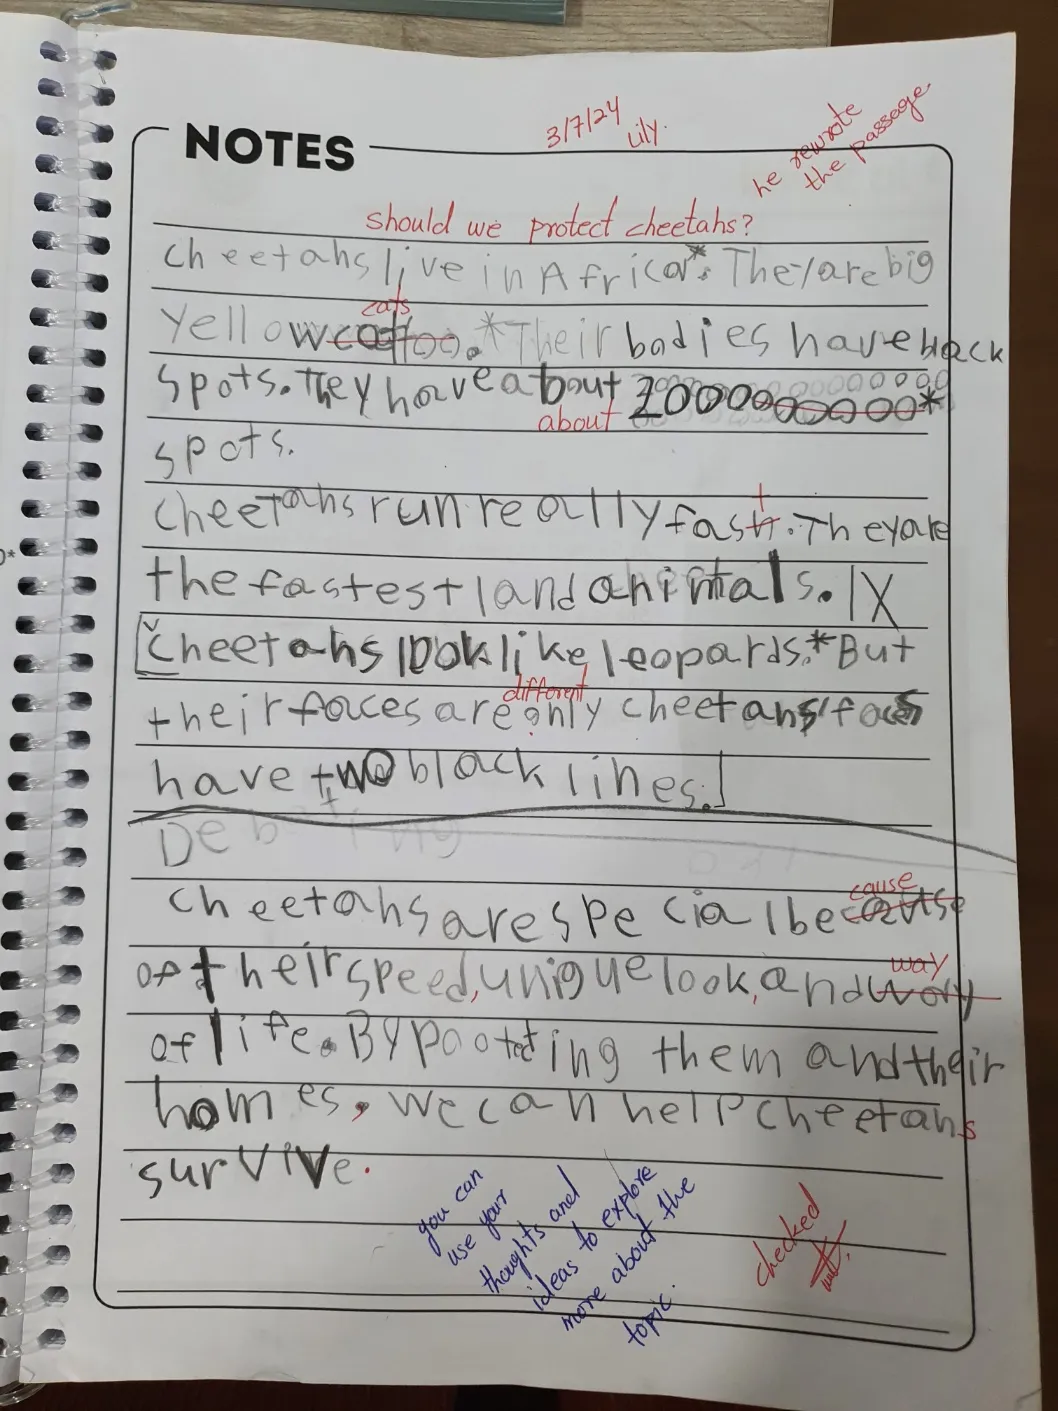 NOTES
3/7/24
Lily.
he rewrote
the passage.
should we protect cheetahs?
cheetahs live in Africa*. They are big
cats
Yellow .*Their bodies have black
spots. They have about 20000000000*
about
spots.
cheetahs run really fast. They are
t
the fastest land animals. IX
[cheetahs look like leopards.*But
different
their faces are only cheetahs faces
have two black lines.]
Debating
cause
cheetahs are special because
way
of their speed, unique look, and way
of life. By pootecting them and their
homes, we can help cheetahs
survive.
you can
use your
thoughts and
ideas to explore
more about the
topic.
checked